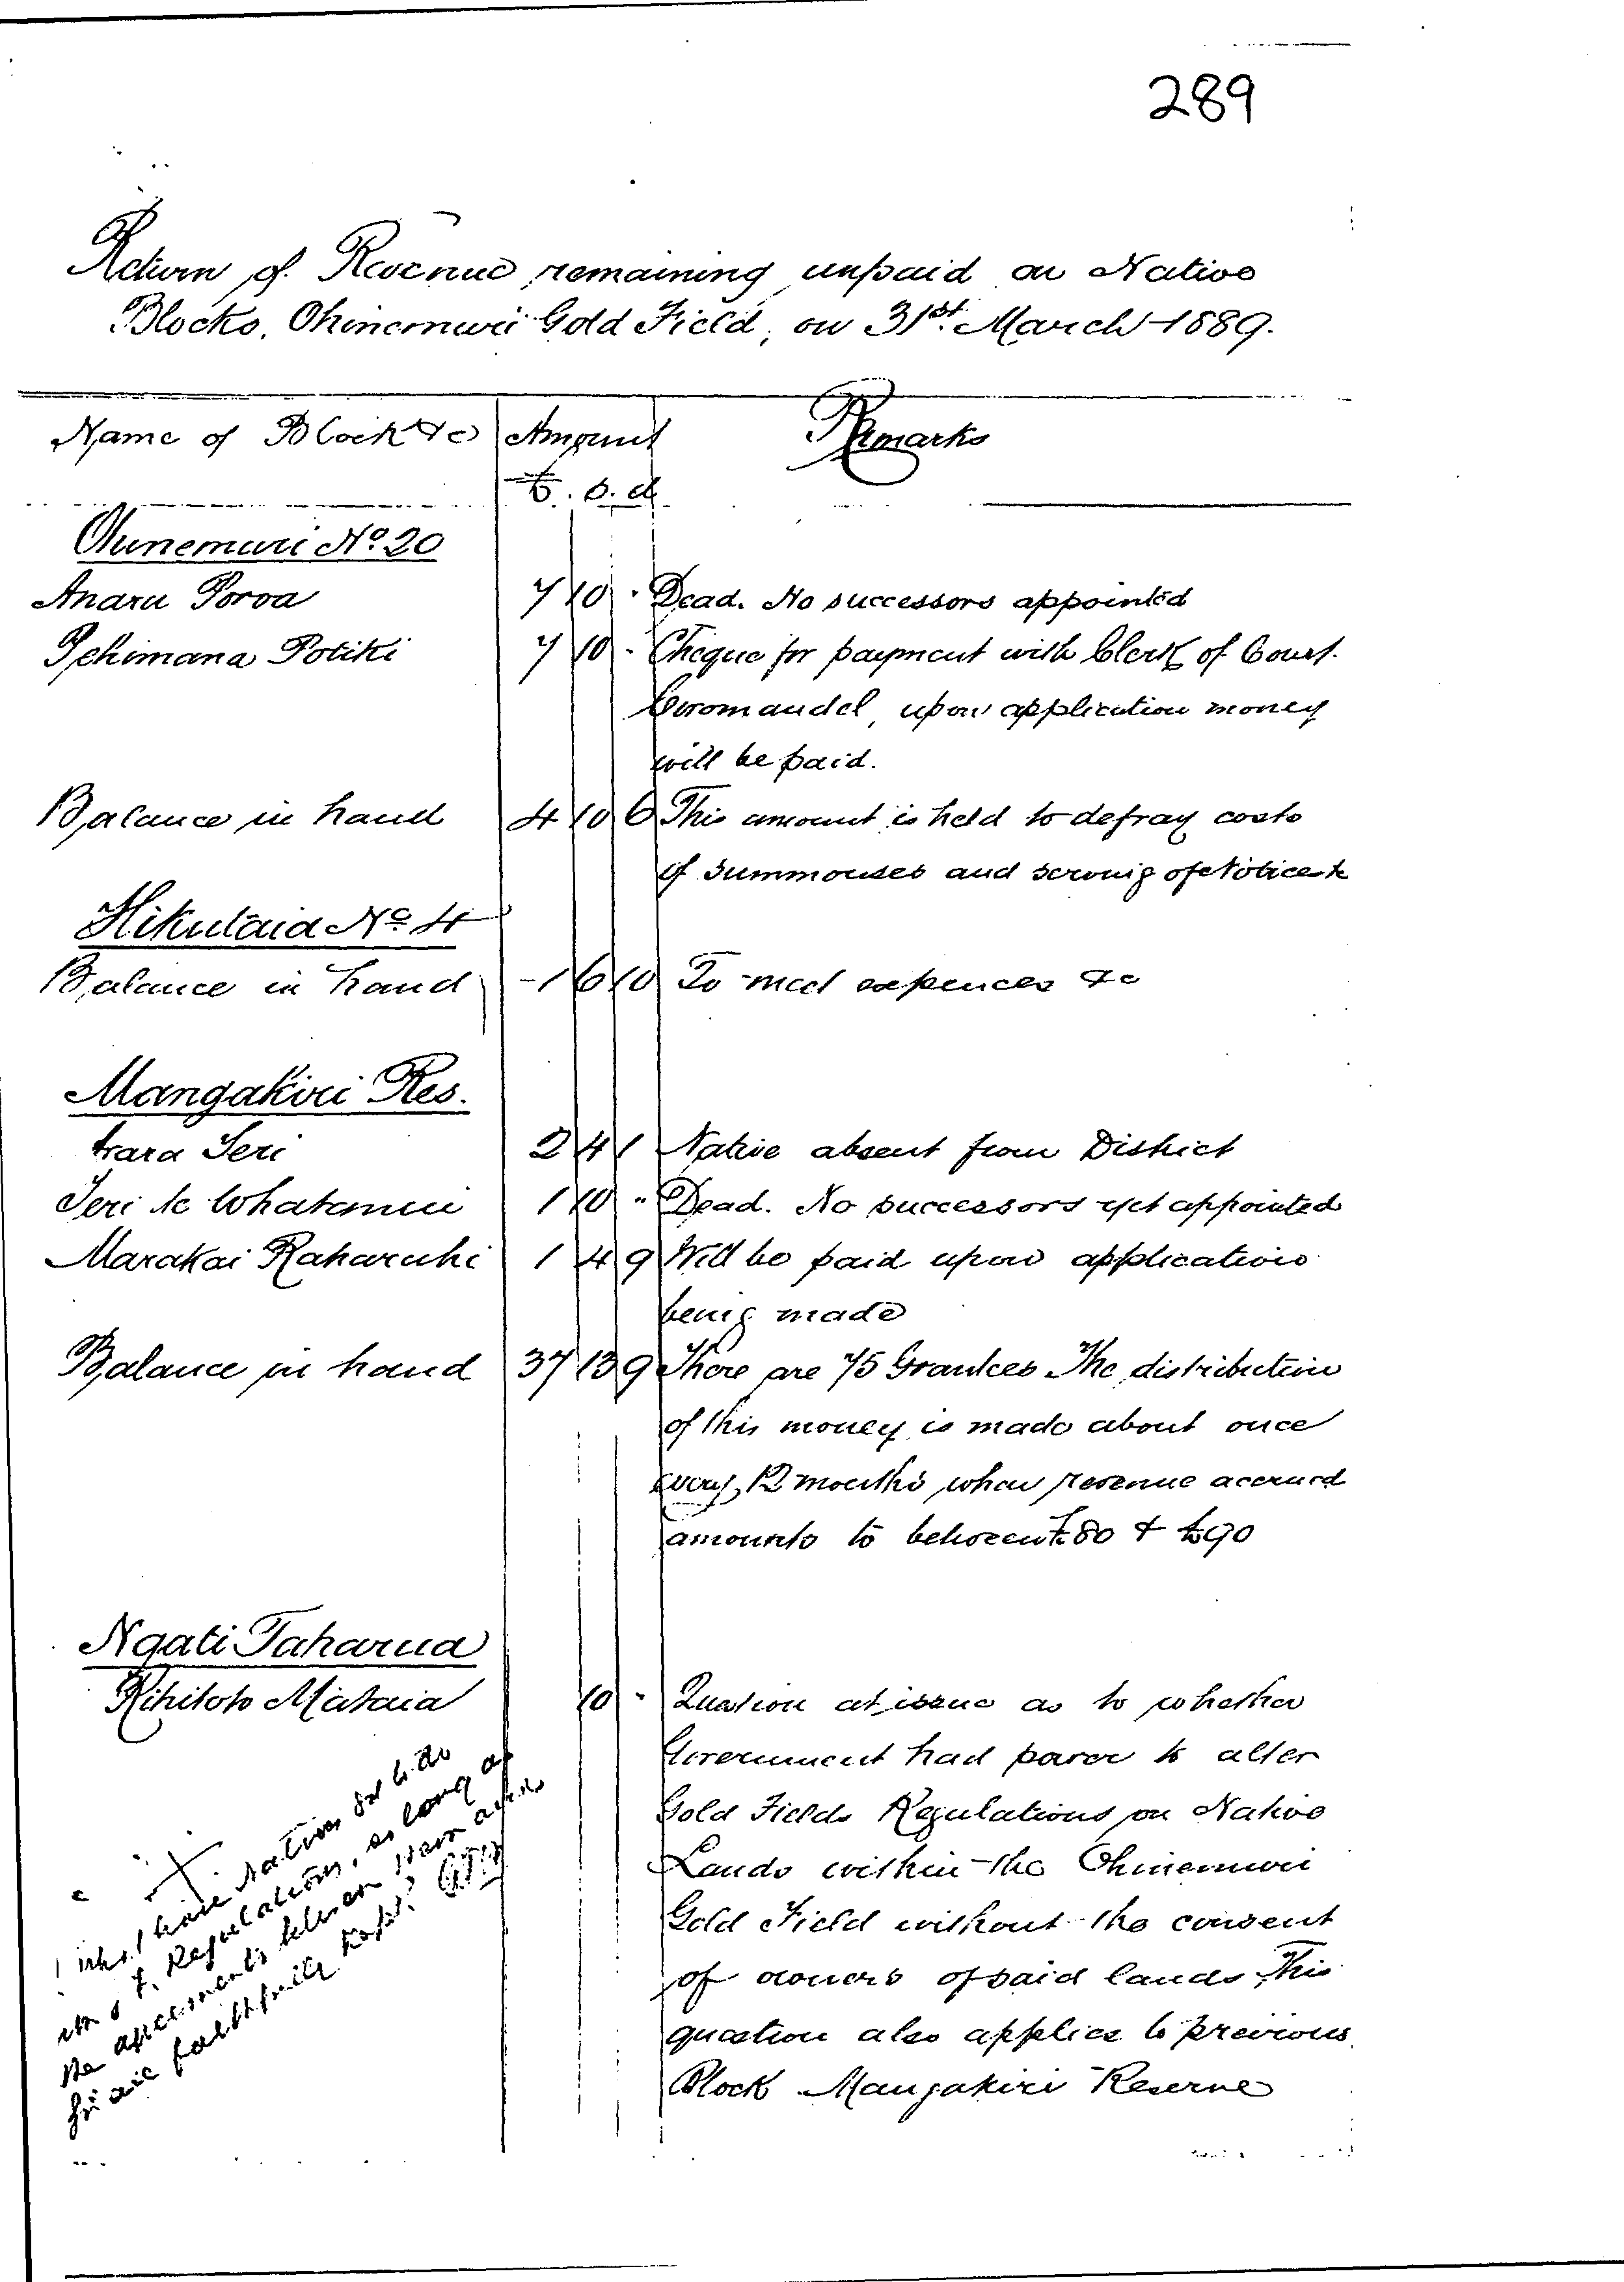 289
Return of Revenue remaining unpaid on Native
Blocks, Ohinemuri Gold Field, on 31st March 1889.
Name of Block &c Amount Remarks
£. s. d
Ohinemuri No. 20
Anaru Poroa 7 10 - Dead. No successors appointed
Tehimana Potiki 7 10 - Cheque for payment with Clerk of Court.
Coromandel, upon application money
will be paid.
Balance in hand 4 10 6 This amount is held to defray costs
of summonses and serving of Notices &
Hikutaia No. 4
Balance in hand - 16 10 To meet expences &c
Mangakiri Res.
Seri 2 4 1 Native absent from District
Seri te Whatamui 1 10 " Dead. No successors yet appointed
Marakai Raharuhi 1 4 9 Will be paid upon application
being made
Balance in hand 37 13 9 There are 75 Grantees The distribution
of this money is made about once
every 12 months when revenue accrued
amounts to between £80 & £90
Ngati Taharua
Kihitoto Mataia 10 - Question at issue as to whether
Government had power to alter
Gold Fields Regulations on Native
Lands within the Ohinemuri
Gold Field without the consent
of owners of said lands This
question also applies to previous
Block Mangakiri Reserve
have Natives to do
Regulations, as long as
the agreements between
are faithfully kept?